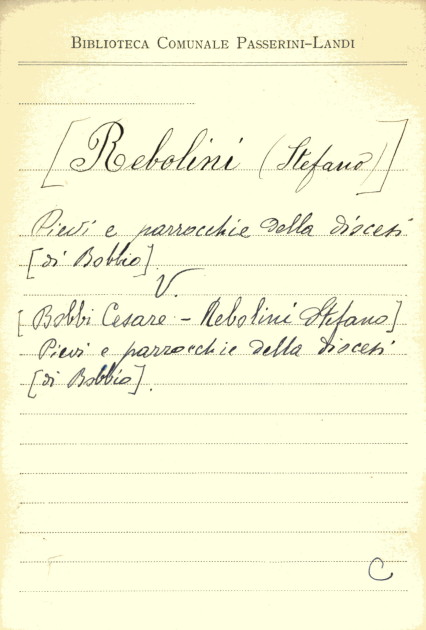 BIBLIOTECA COMUNALE PASSERINI-LANDI
[Rebolini (Stefano)]
Pievi e parrocchie della diocesi
[di Bobbio].
V.
[Bobbi Cesare - Rebolini Stefano]
Pievi e parrocchie della diocesi
[di Bobbio].
C